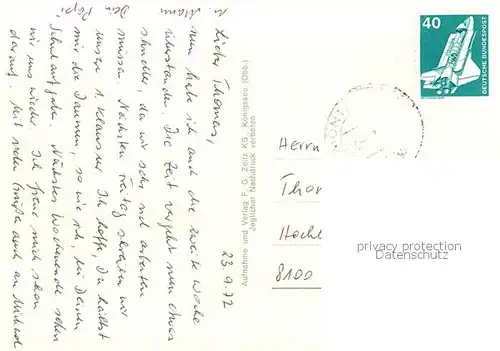 23.9.77
Lieber Thomas,
nun habe ich auch die zweite Woche
überstanden. Die Zeit vergeht nun etwas
schneller, da wir sehr viel arbeiten
müssen. Nächsten Freitag schreiben wir
unsere 1. Klausur. Ich hoffe, Du hältst
mir die Daumen, so wie ich, in Deinen
Schulaufgaben. Nächstes Wochenende sehen
wir uns wieder. Ich freue mich schon
darauf. Mit vielen Grüßen auch an Michael
u. Mami
Dein Papi
Aufnahme und Verlag F. G. Zeitz KG., Königssee (Obb.)
Jeglicher Nachdruck verboten
40
DEUTSCHE BUNDESPOST
Herrn
Thor
Hochl
8100
privacy protection
Datenschutz